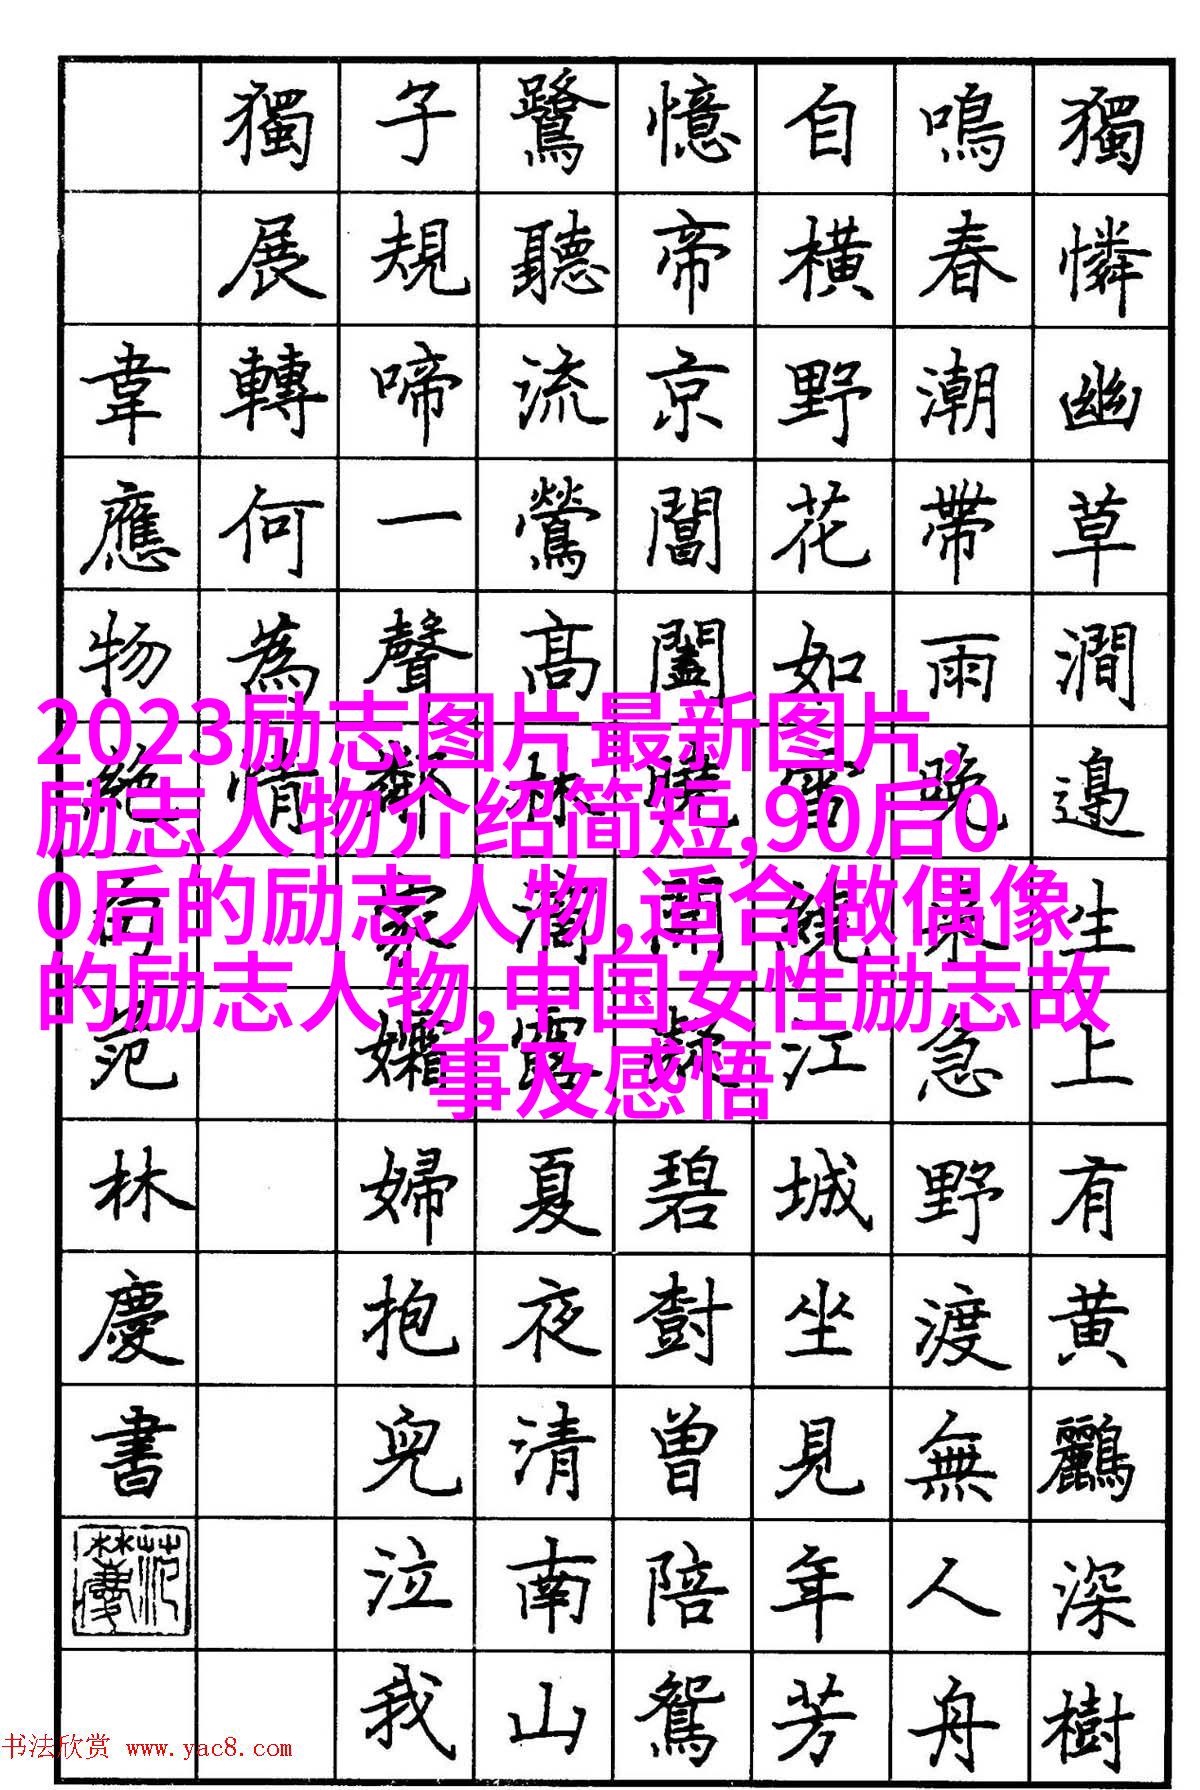 獨憐幽草澗邊生上有黄鸝深樹
鳴春潮帶雨晚来急野渡無人舟
自横野花如雪繞江城坐見年芳
憶帝京閶闔曉開凝碧樹曾陪鴛
鷺聽流鶯高林滴露夏夜清南山
子規啼一聲鄰家孀婦抱兒泣我
獨展轉何為情
韋應物絕句范林慶書
范林慶
2023励志图片最新图片,
励志人物介绍简短,90后0
0后的励志人物,适合做偶像
的励志人物,中国女性励志故
事及感悟
书法欣赏 www.yac8.com